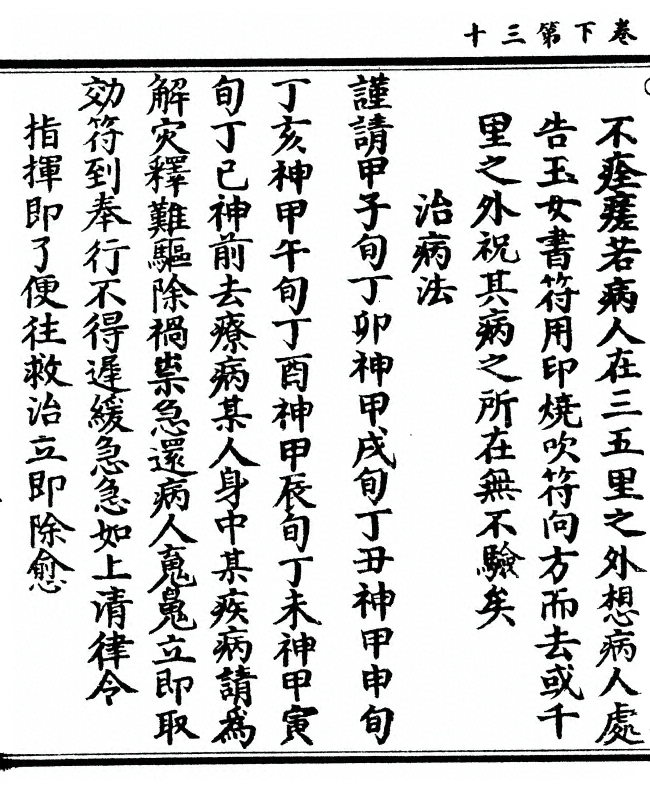 卷下第三十
不痊蹇若病人在三五里之外想病人處
告玉女書符用印燒吹符向方而去或千
里之外祝其病之所在無不驗矣
治病法
謹請甲子旬丁卯神甲戌旬丁丑神甲申旬
丁亥神甲午旬丁酉神甲辰旬丁未神甲寅
旬丁巳神前去療病某人身中某疾病請爲
解灾釋難驅除禍祟急還病人䰟䰟立即取
効符到奉行不得遲緩急急如上清律令
指揮即了便往救治立即除愈